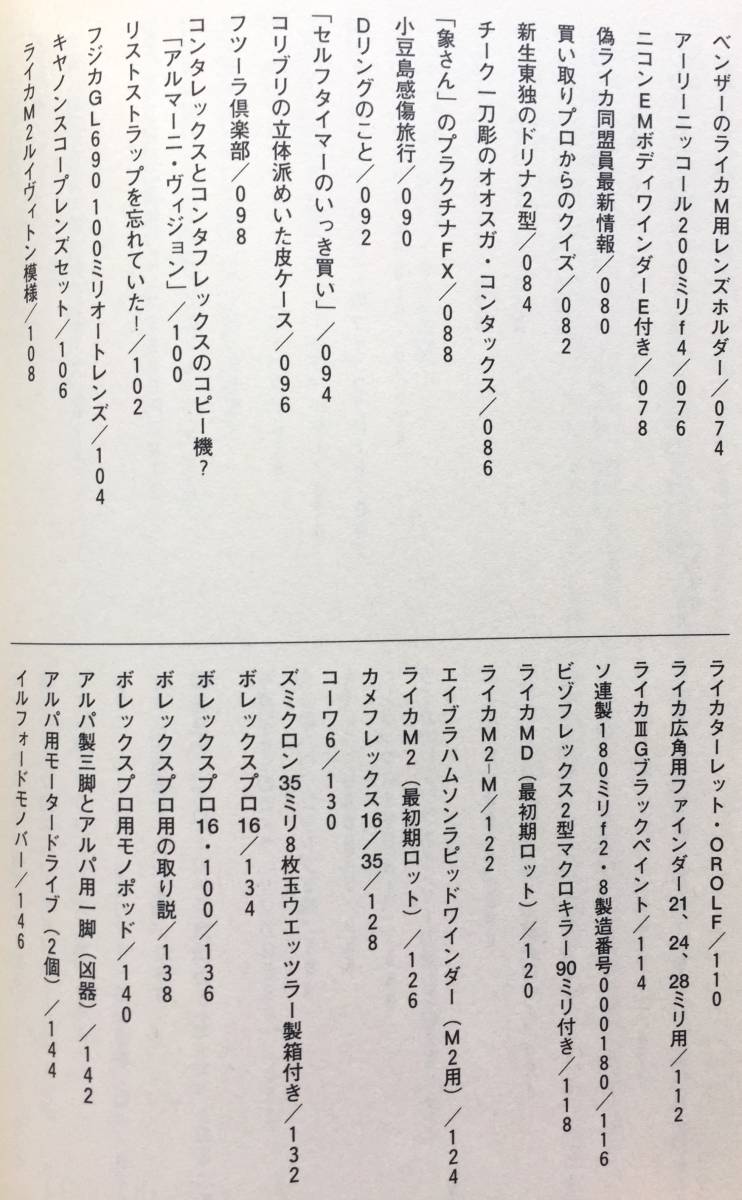 ベンザーのライカM用レンズホルダー／074
アーリーニッコール200ミリf4／076
ニコンEMボディワインダーE付き／078
偽ライカ同盟員最新情報／080
買い取りプロからのクイズ／082
新生東独のドリナ2型／084
チーク一刀彫のオオスガ・コンタックス／086
「象さん」のプラクチナFX／088
小豆島感傷旅行／090
Dリングのこと／092
「セルフタイマーのいっき買い」／094
コリブリの立体派めいた皮ケース／096
フツーラ倶楽部／098
コンタレックスとコンタフレックスのコピー機?
「アルマーニ・ヴィジョン」／100
リストストラップを忘れていた!／102
フジカGL690 100ミリオートレンズ／104
キヤノンスコープレンズセット／106
ライカM2ルイヴィトン模様／108
ライカターレット・OROLF／110
ライカ広角用ファインダー21、24、28ミリ用／112
ライカⅢGブラックペイント／114
ソ連製180ミリf2・8製造番号000180／116
ビゾフレックス2型マクロキラー90ミリ付き／118
ライカMD（最初期ロット）／120
ライカM2-M／122
エイブラハムソンラピッドワインダー（M2用）／124
ライカM2（最初期ロット）／126
カメフレックス16／35／128
コーワ6／130
ズミクロン35ミリ8枚玉ウエッツラー製箱付き／132
ボレックスプロ16／134
ボレックスプロ16・100／136
ボレックスプロ用の取り説／138
ボレックスプロ用モノポッド／140
アルパ製三脚とアルパ用一脚（凶器）／142
アルパ用モータードライブ（2個）／144
イルフォードモノバー／146